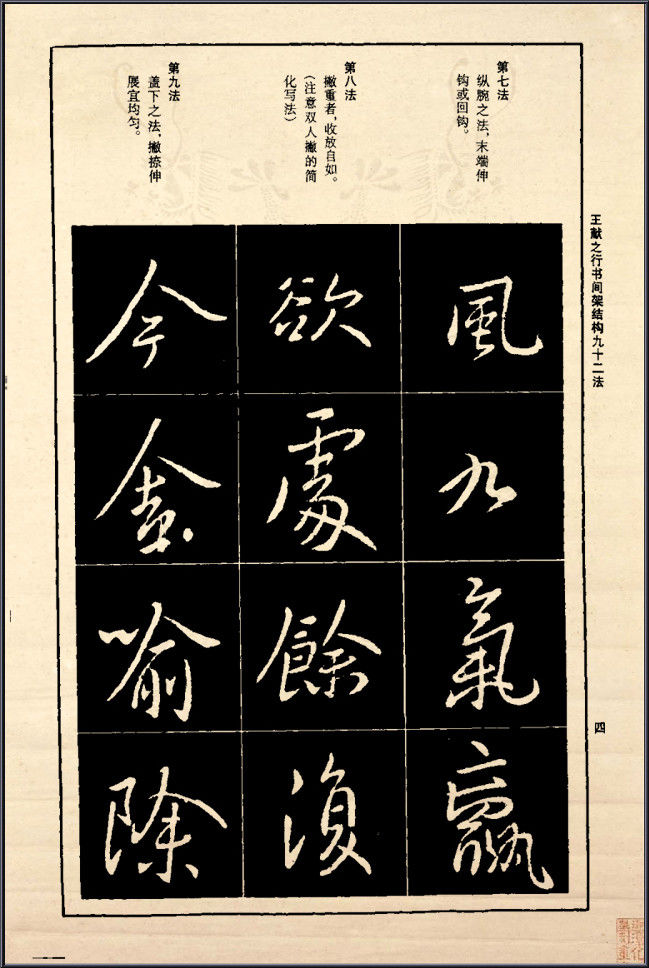 王献之行书间架结构九十二法
四
第七法
纵腕之法，末端伸
钩或回钩。
第八法
撇重者，收放自如。
（注意双人撇的简
化写法）
第九法
盖下之法，撇捺伸
展宜均匀。
風
九
氣
羸
欲
處
餘
復
今
喻
除